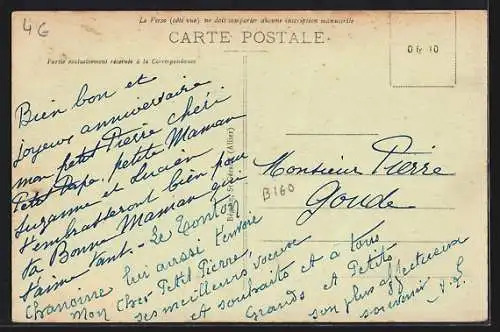 4G
Le Verso (côté vue) ne doit comporter aucune inscription manuscrite
CARTE POSTALE
Partie exclusivement réservée à la Correspondance
Bien bon et
joyeux anniversaire
mon petit Pierre chéri
Petit Papa, petite Maman
Suzanne et Lucien
t'embrasseront bien pour
ta Bonne Maman qui
t'aime tant. Le Tonton
Chanoine lui aussi t'envoie
mon Cher Petit Pierre,
ses meilleurs voeux
et souhaits et à tous
Grands et Petits
son plus affectueux
souvenir
(Allier)
Monsieur Pierre
Goude
B160